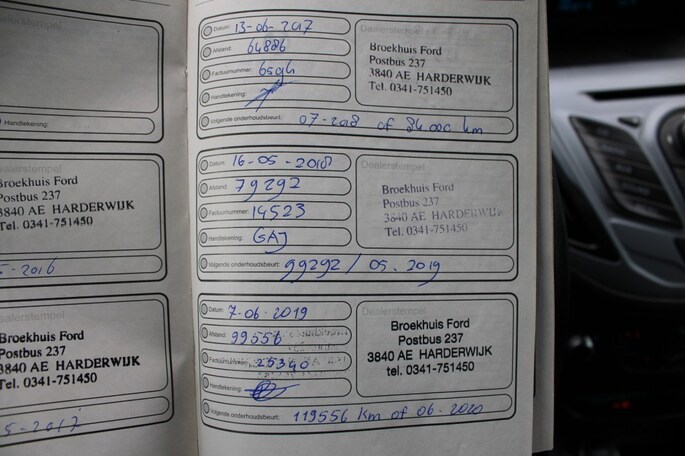 Handtekening:
Dealerstempel
Broekhuis Ford
Postbus 237
3840 AE HARDERWIJK
Tel. 0341-751450
5-2016
Dealerstempel
Broekhuis Ford
Postbus 237
3840 AE HARDERWIJK
Tel. 0341-751450
5-2017
Datum: 13-06-2017
Afstand: 64886
Factuurnummer:
Handtekening:
Volgende onderhoudsbeurt: 07-2018 of 84000 km
Dealerstempel
Broekhuis Ford
Postbus 237
3840 AE HARDERWIJK
Tel. 0341-751450
Datum: 16-05-2018
Afstand: 79292
Factuurnummer: 14523
Handtekening: GAJ
Volgende onderhoudsbeurt: 99292 / 05.2019
Dealerstempel
Broekhuis Ford
Postbus 237
3840 AE HARDERWIJK
Tel. 0341-751450
Datum: 7-06-2019
Afstand: 99556
Factuurnummer: 25340
Handtekening:
Volgende onderhoudsbeurt: 119556 km of 06-2020
Dealerstempel
Broekhuis Ford
Postbus 237
3840 AE HARDERWIJK
tel. 0341-751450